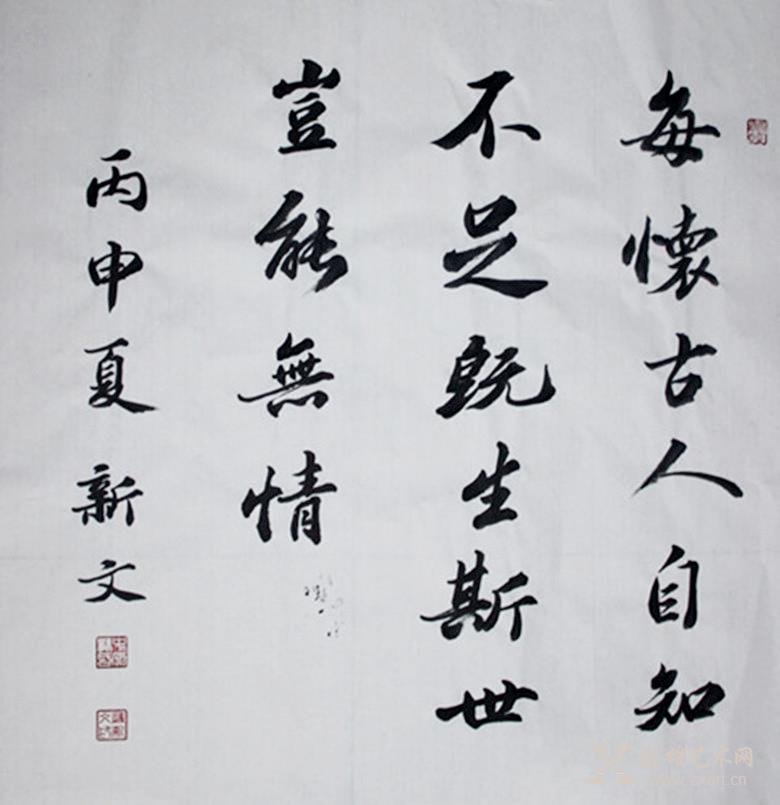 每懷古人自知
不足既生斯世
豈能無情
丙申夏新文